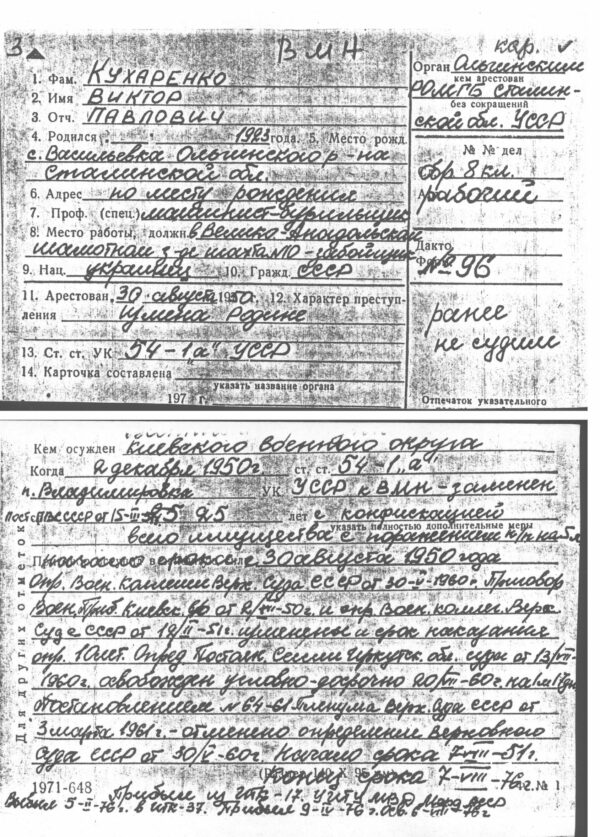 З ВМН
кар.
1. Фам. КУХАРЕНКО
2. Имя ВИКТОР
3. Отч. ПАВЛОВИЧ
4. Родился 1923 года. 5. Место рожд.
с. Васильевка Ольгинского р-на
Сталинской обл.
6. Адрес по месту рождения
7. Проф. (спец.) машинист-бурильщик
8. Место работы, должн. в Велико-Анадольском
шамотном з-де шахта №10 - забойщик
9. Нац. украинец 10. Гражд. СССР
11. Арестован 30 августа 1950г. 12. Характер преступ-
ления измена Родине
13. Ст. ст. УК 54-1„а" УССР
14. Карточка составлена
указать название органа
197 г.
Орган Ольгинским
кем арестован
РОМГБ Сталин-
без сокращений
ской обл. УССР
№ № дел
обр. 8 кл.
рабочий
Дакто
№ 96
ранее
не судим
Отпечаток указательного
Кем осужден Киевского военного округа
Когда 2 декабря 1950г. ст. ст. 54-1„а"
п. Владимировка УК УССР к ВМН-заменен
СССР от 15-III 25 лет с конфискацией
указать полностью дополнительные меры
всего имущества с поражением на 5 л
срока с 30 августа 1950 года
Опр. Воен. коллегии Верх. Суда СССР от 30-V-1960г. Приговор
Воен. Триб. Киевск. от 2/XII-50г. и опр. Воен. коллег. Верх.
Суда СССР от изменены и срок наказания
опр. 10 лет. Иркутск. обл. суда от
1960г. освобожден условно-досрочно 20/VII-60г. на
Постановлением №64-61 Пленума Верх. Суда СССР от
3 марта 1961г. - отменено определение Верховного
Суда СССР от 30/V-60г. Начало срока 7-VIII-51г.
Конец срока 7-VIII-76г. № 1
1971-648 Прибыл из ИТК-17 МВД
Выбыл 5-II-76г. в ИТК-37. Прибыл 9-IV-76г.
Для других отметок